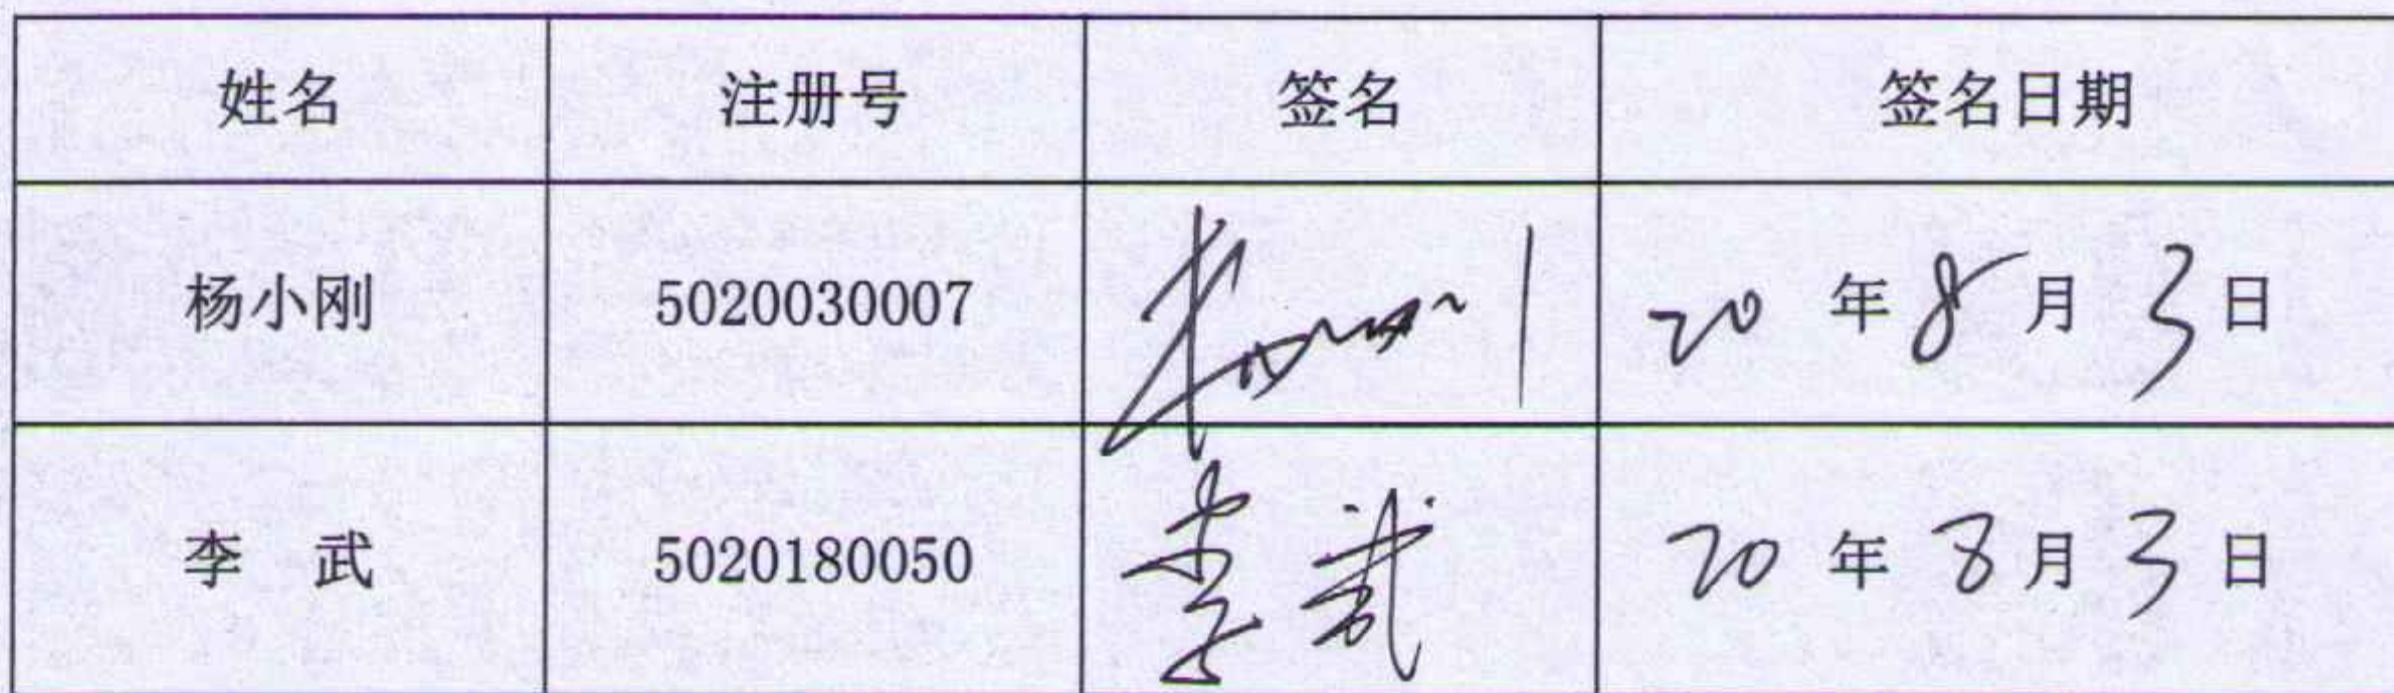 姓名 注册号 签名 签名日期
杨小刚 5020030007 杨小刚 20 年 8 月 3 日
李 武 5020180050 李武 20 年 8 月 3 日